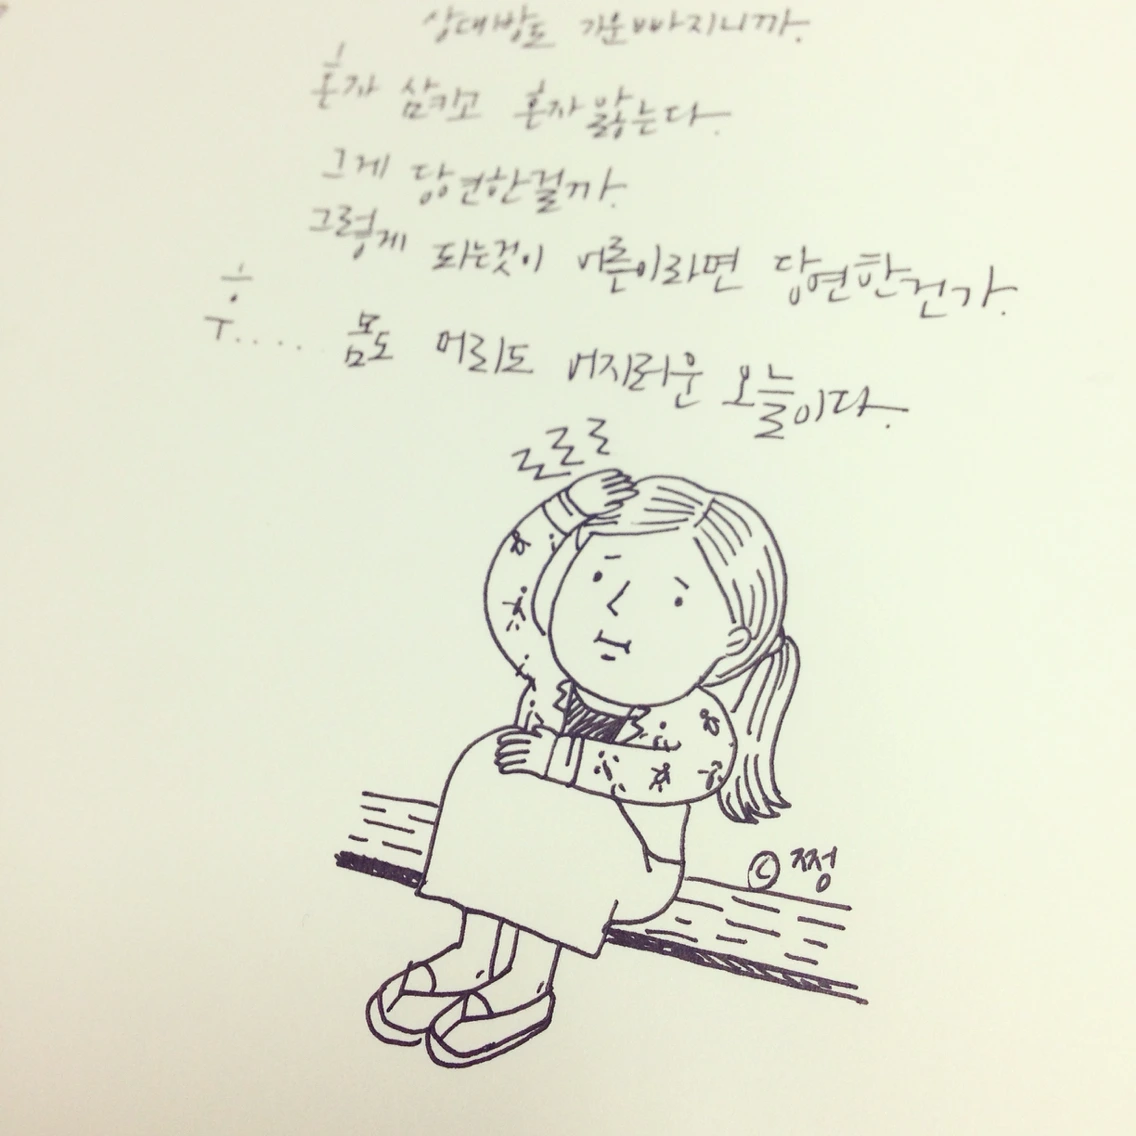 상대방도 기운빠지니까.
혼자 삼키고 혼자 앓는다.
그게 당연한걸까.
그렇게 되는것이 어른이라면 당연한건가.
휴.... 몸도 머리도 어지러운 오늘이다.
ㄹㄹㄹ
© 쩡